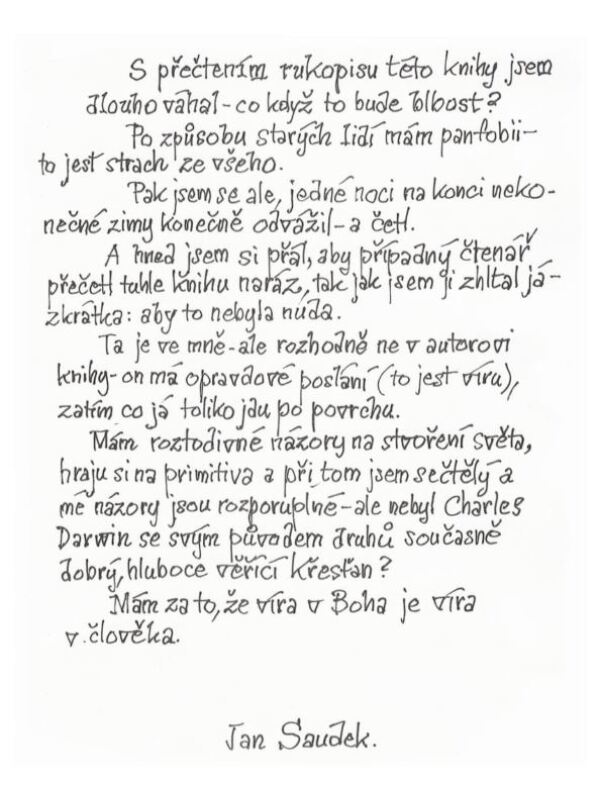 S přečtením rukopisu této knihy jsem
dlouho váhal - co když to bude blbost?
Po způsobu starých lidí mám panfobii -
to jest strach ze všeho.
Pak jsem se ale, jedné noci na konci neko-
nečné zimy konečně odvážil - a četl.
A hned jsem si přál, aby případný čtenář
přečetl tuhle knihu naráz, tak jak jsem ji zhltal já -
zkrátka: aby to nebyla nuda.
Ta je ve mně - ale rozhodně ne v autorovi
knihy - on má opravdové poslání (to jest víru),
zatím co já toliko jdu po povrchu.
Mám roztodivné názory na stvoření světa,
hraju si na primitiva a při tom jsem sečtělý a
mé názory jsou rozporuplné - ale nebyl Charles
Darwin se svým původem druhů současně
dobrý, hluboce věřící křesťan?
Mám za to, že víra v Boha je víra
v člověka.
Jan Saudek.